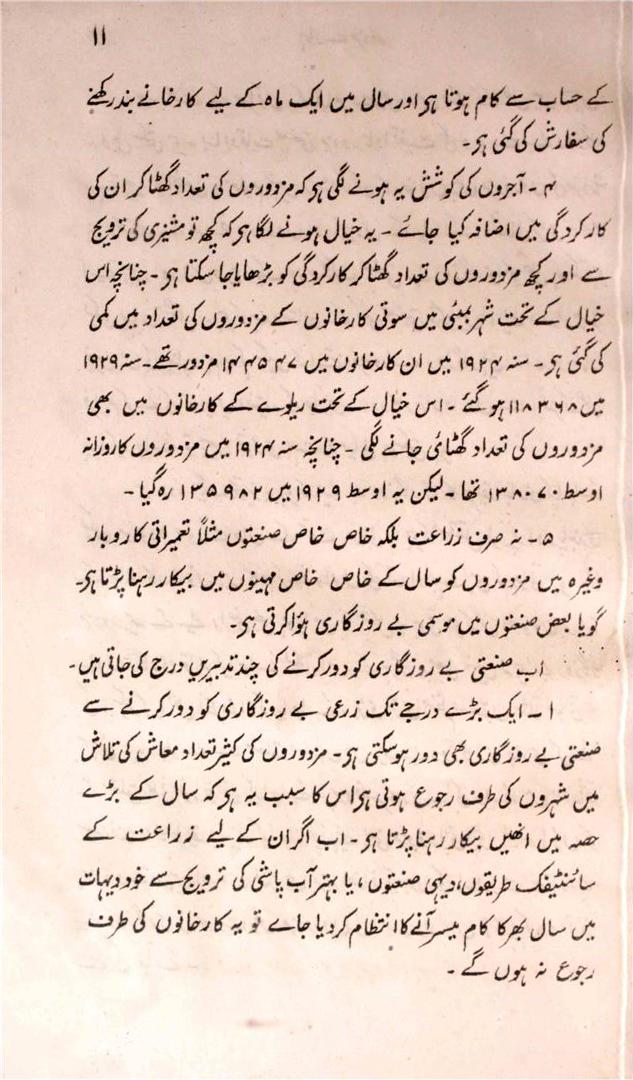 ۱۱
کے حساب سے کام ہوتا ہو اور سال میں ایک ماہ کے لیے کارخانے بند رکھنے
کی سفارش کی گئی ہو۔
۴ ۔ آجروں کی کوشش یہ ہونے لگی ہو کہ مزدوروں کی تعداد گھٹا کر ان کی
کارکردگی میں اضافہ کیا جائے ۔ یہ خیال ہونے لگا ہو کہ کچھ تو مشینری کی ترویج
سے اور کچھ مزدوروں کی تعداد گھٹا کر کارکردگی کو بڑھایا جا سکتا ہو ۔ چنانچہ اس
خیال کے تحت شہر بمبئی میں سوتی کارخانوں کے مزدوروں کی تعداد میں کمی
کی گئی ہو ۔ سنہ ۱۹۲۴ میں ان کارخانوں میں ۱۴۴۵۴۷ مزدور تھے ۔ سنہ ۱۹۲۹
میں ۱۱۸۳۶۸ ہو گئے ۔ اس خیال کے تحت ریلوے کے کارخانوں میں بھی
مزدوروں کی تعداد گھٹائی جانے لگی ۔ چنانچہ سنہ ۱۹۲۴ میں مزدوروں کا روزانہ
اوسط ۱۳۸۰۷۰ تھا ۔ لیکن یہ اوسط ۱۹۲۹ میں ۱۳۵۹۸۲ رہ گیا ۔
۵ ۔ نہ صرف زراعت بلکہ خاص خاص صنعتوں مثلاً تعمیراتی کاروبار
وغیرہ میں مزدوروں کو سال کے خاص خاص مہینوں میں بیکار رہنا پڑتا ہو۔
گویا بعض صنعتوں میں موسمی بے روزگاری ہؤا کرتی ہو۔
اب صنعتی بے روزگاری کو دور کرنے کی چند تدبیریں درج کی جاتی ہیں ۔
۱ ۔ ایک بڑے درجے تک زرعی بے روزگاری کو دور کرنے سے
صنعتی بے روزگاری بھی دور ہو سکتی ہو ۔ مزدوروں کی کثیر تعداد معاش کی تلاش
میں شہروں کی طرف رجوع ہوتی ہو اس کا سبب یہ ہو کہ سال کے بڑے
حصہ میں انھیں بیکار رہنا پڑتا ہو ۔ اب اگر ان کے لیے زراعت کے
سائنٹیفک طریقوں، دیہی صنعتوں ، یا بہتر آب پاشی کی ترویج سے خود دیہات
میں سال بھر کا کام میسر آنے کا انتظام کر دیا جاے تو یہ کارخانوں کی طرف
رجوع نہ ہوں گے ۔